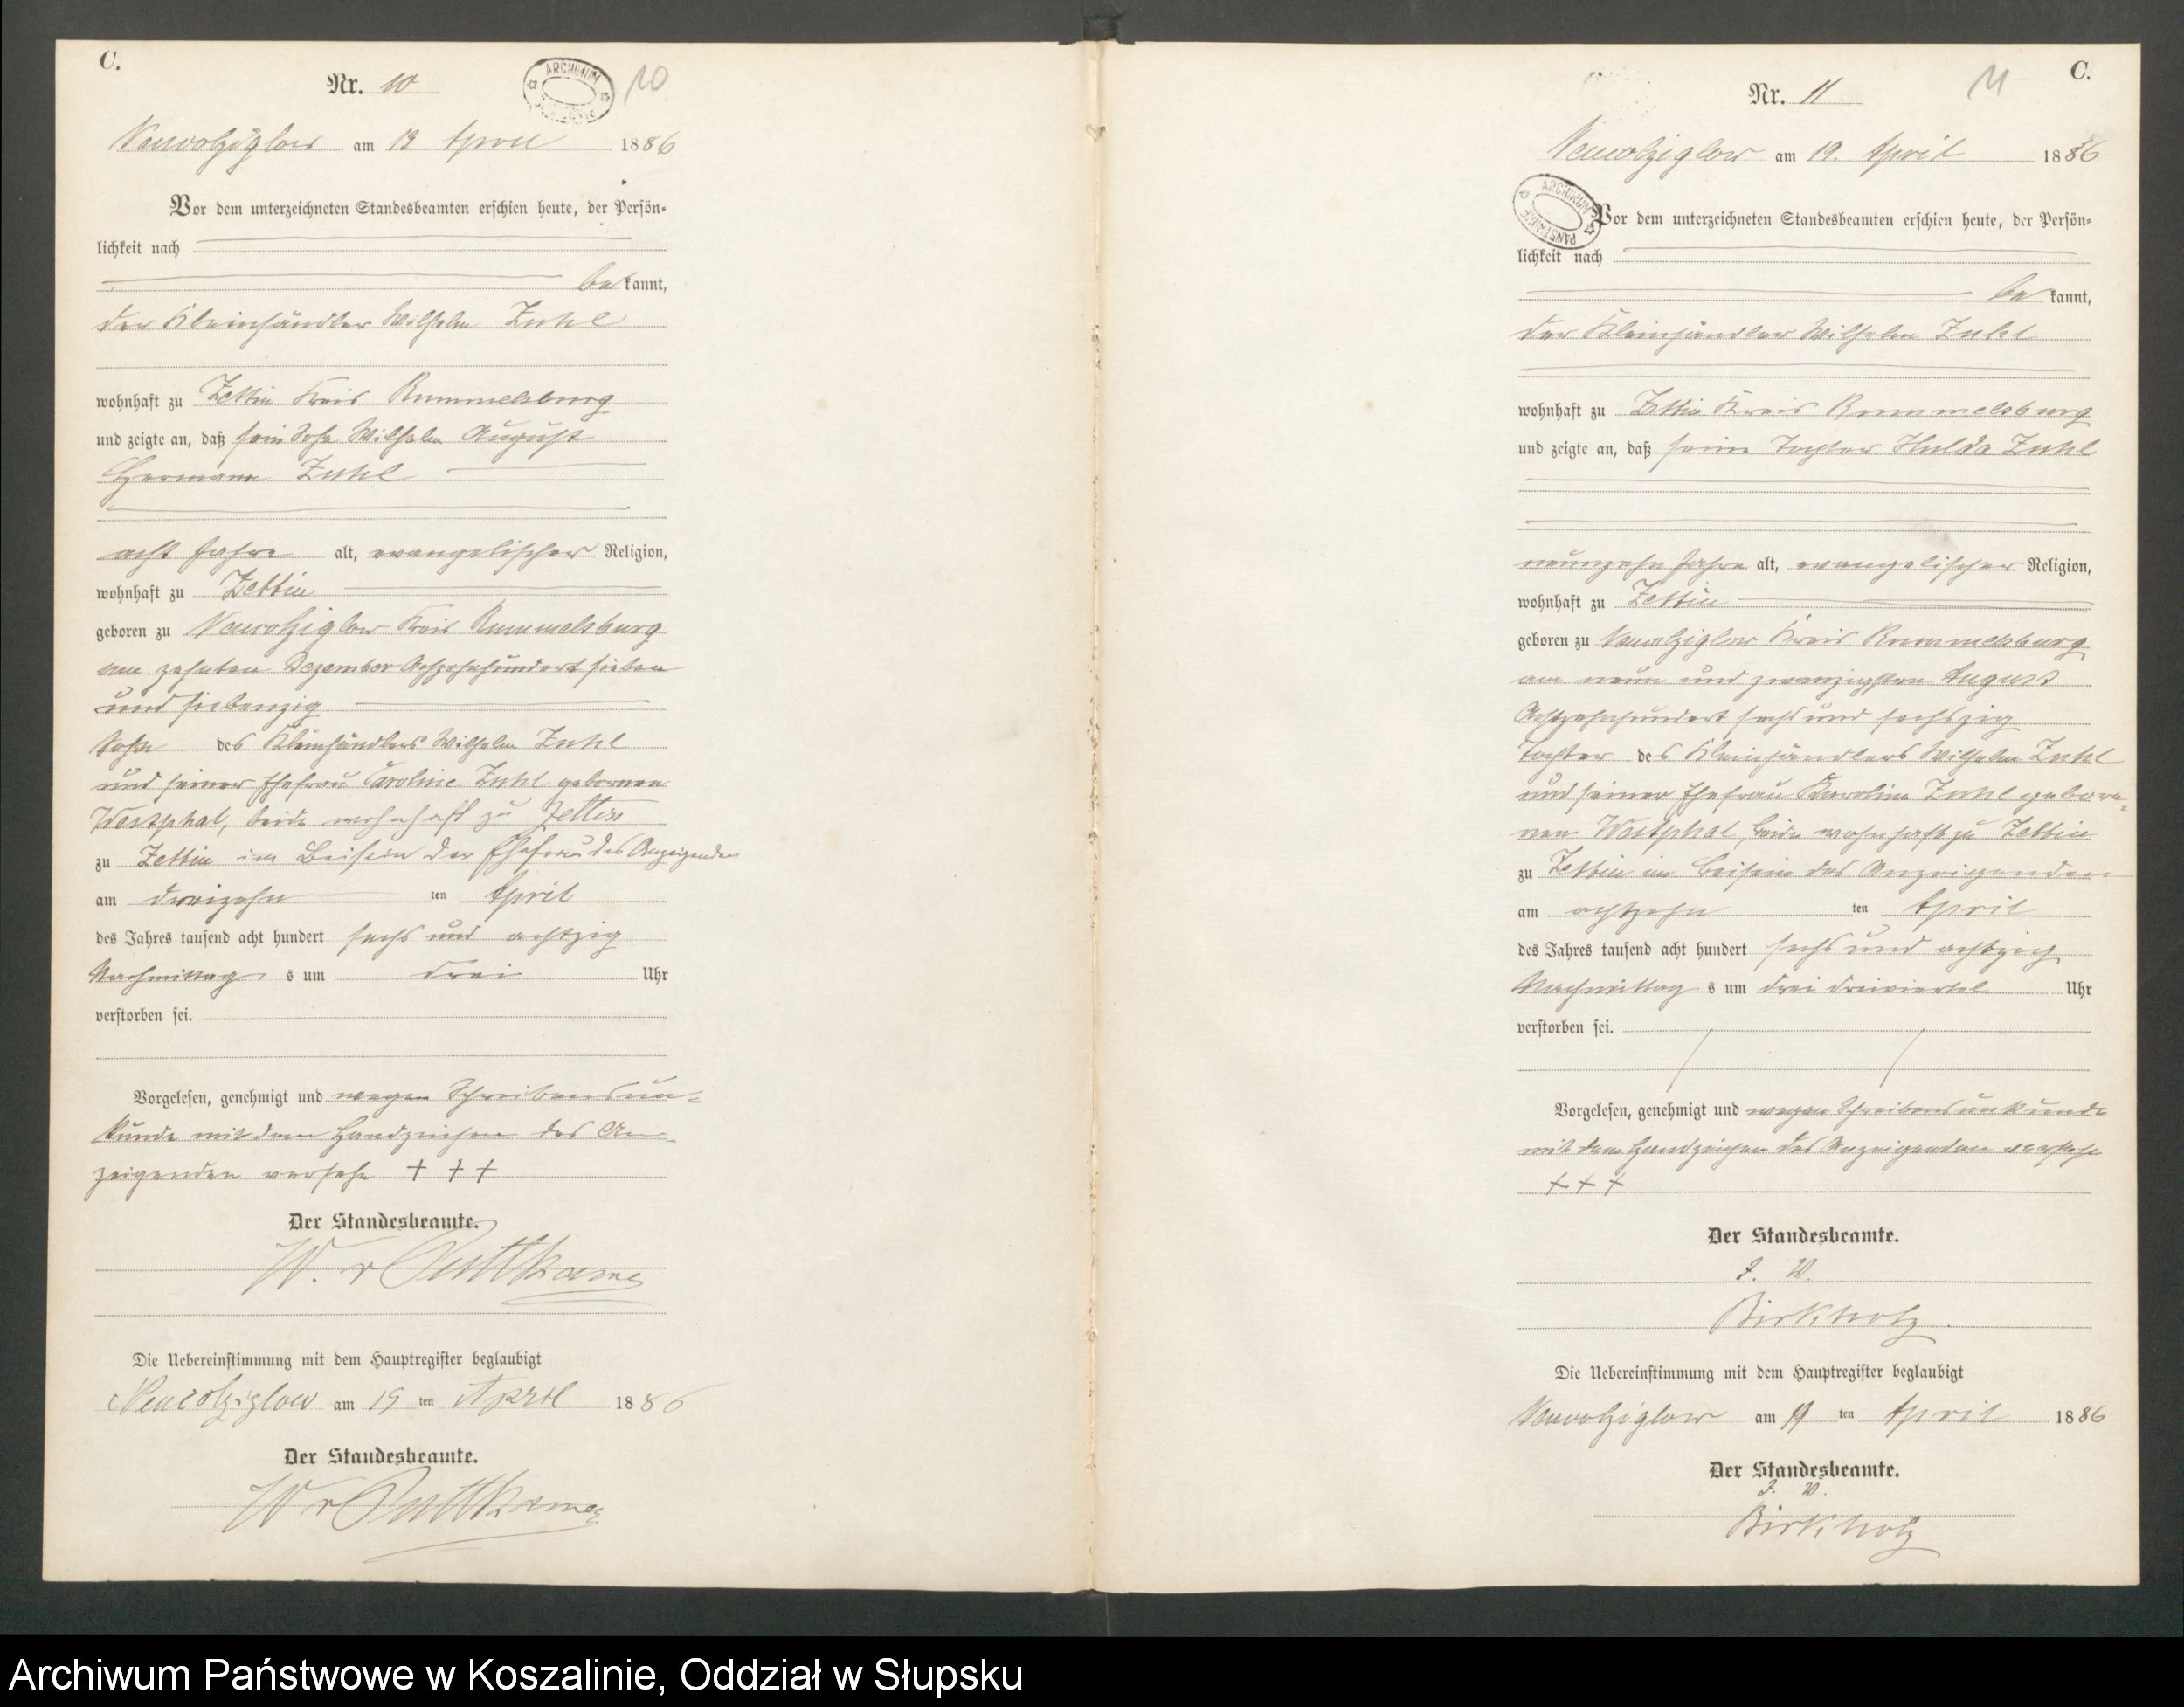 C.
Nr. 10
ARCHIWUM
10
Neuwolziglow am 19 April 1886
Vor dem unterzeichneten Standesbeamten erschien heute, der Persön-
lichkeit nach
bekannt,
der Kleinhändler Wilhelm Zuhl
wohnhaft zu Zettin Kreis Rummelsburg
und zeigte an, daß sein Sohn Wilhelm August
Hermann Zuhl
acht Jahre alt, evangelischer Religion,
wohnhaft zu Zettin
geboren zu Neuwolziglow Kreis Rummelsburg
am zehnten Dezember Achtzehnhundert sieben
und siebenzig
Sohn des Kleinhändlers Wilhelm Zuhl
und seiner Ehefrau Caroline Zuhl gebornen
Westphal, beide wohnhaft zu Zettin
zu Zettin im Beisein der Ehefrau des Anzeigenden
am dreizehn ten April
des Jahres tausend acht hundert sechs und achtzig
Nachmittags um drei Uhr
verstorben sei.
Vorgelesen, genehmigt und wegen Schreibensun-
kunde mit dem Handzeichen des An-
zeigenden versehn + + +
Der Standesbeamte.
W. v Puttkamer
Die Uebereinstimmung mit dem Hauptregister beglaubigt
Neuwolziglow am 19 ten April 1886
Der Standesbeamte.
W v Puttkamer
C.
Nr. 11
11
Neuwolziglow am 19. April 1886
ARCHIWUM PAŃSTWOWE
Vor dem unterzeichneten Standesbeamten erschien heute, der Persön-
lichkeit nach
bekannt,
der Kleinhändler Wilhelm Zuhl
wohnhaft zu Zettin Kreis Rummelsburg
und zeigte an, daß seine Tochter Hulda Zuhl
neunzehn Jahre alt, evangelischer Religion,
wohnhaft zu Zettin
geboren zu Neuwolziglow Kreis Rummelsburg
am neun und zwanzigsten August
Achtzehnhundert sechs und sechszig
Tochter des Kleinhändlers Wilhelm Zuhl
und seiner Ehefrau Karoline Zuhl gebore-
nen Westphal, beide wohnhaft zu Zettin
zu Zettin im Beisein des Anzeigenden
am achtzehn ten April
des Jahres tausend acht hundert sechs und achtzig
Nachmittags um drei dreiviertel Uhr
verstorben sei.
Vorgelesen, genehmigt und wegen Schreibensunkunde
mit dem Handzeichen des Anzeigenden versehn
+ + +
Der Standesbeamte.
J. V.
Birkholz.
Die Uebereinstimmung mit dem Hauptregister beglaubigt
Neuwolziglow am 19 ten April 1886
Der Standesbeamte.
J. V.
Birkholz
Archiwum Państwowe w Koszalinie, Oddział w Słupsku